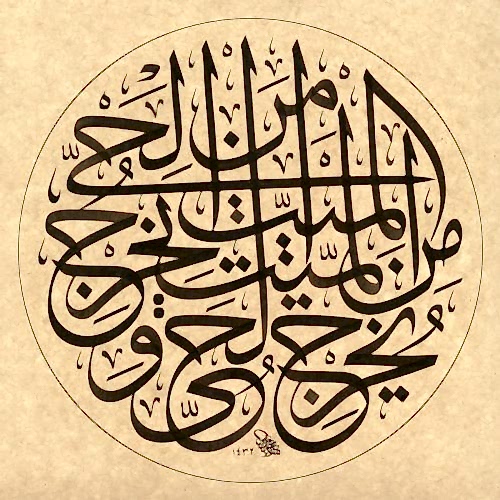 يُخْرِجُ الْحَيَّ مِنَ الْمَيِّتِ وَيُخْرِجُ الْمَيِّتَ مِنَ الْحَيِّ
١٤٣٢